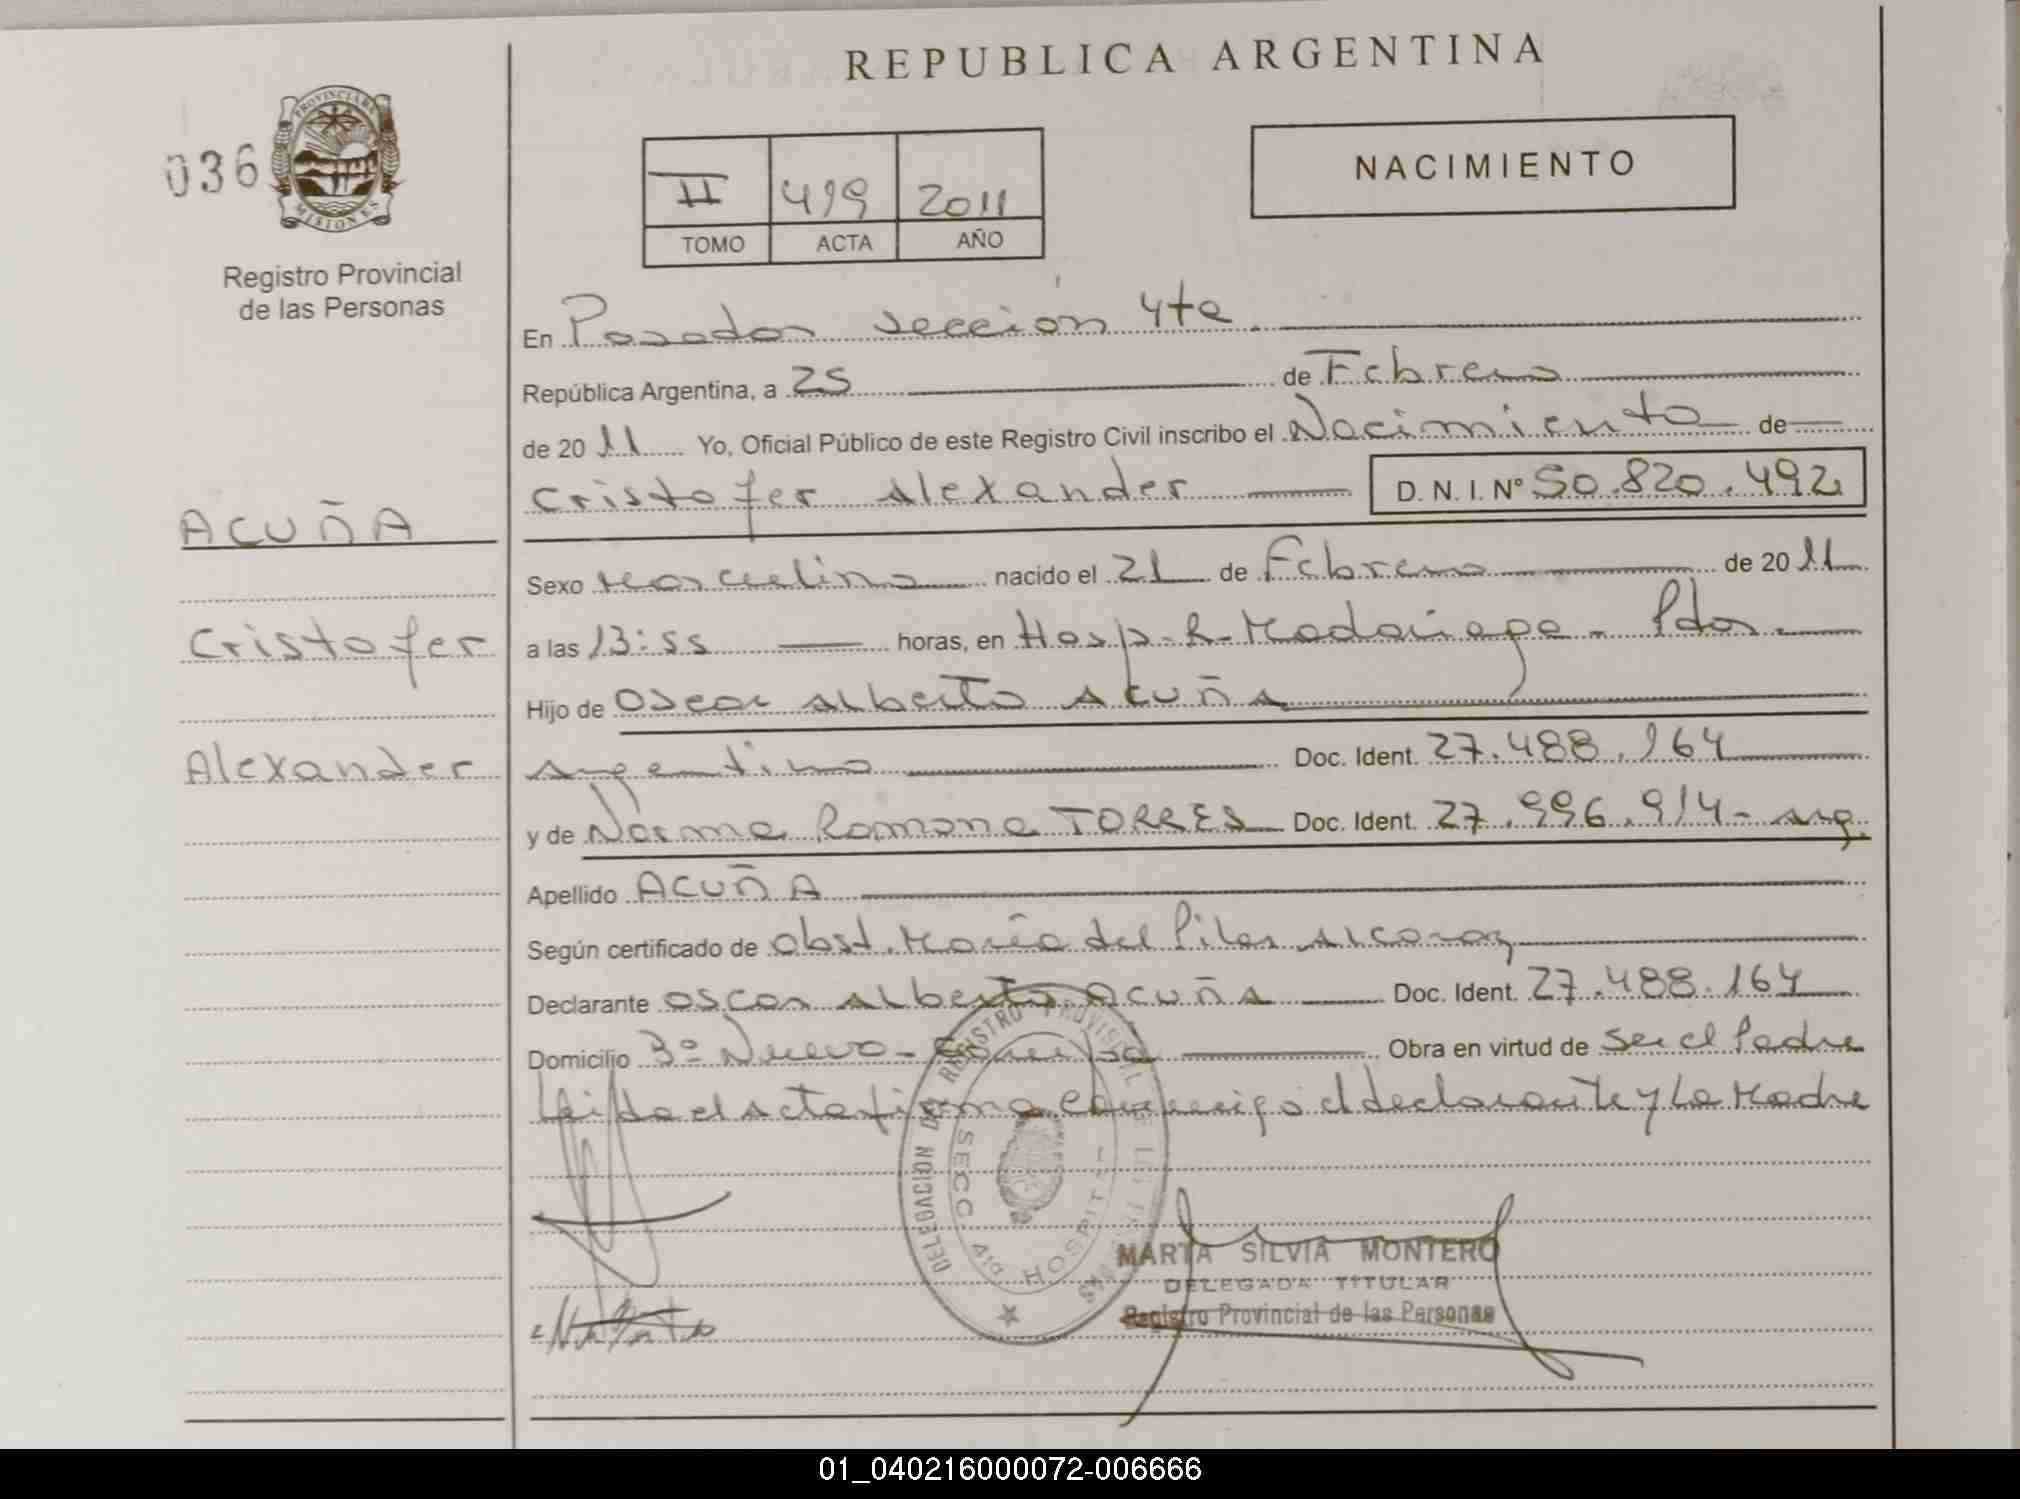 REPUBLICA ARGENTINA
036
PROVINCIA DE
MISIONES
Registro Provincial
de las Personas
II 419 2011
TOMO ACTA AÑO
NACIMIENTO
En Posadas sección 4ta
República Argentina, a 25 de Febrero
de 2011 Yo, Oficial Público de este Registro Civil inscribo el Nacimiento de
Cristofer Alexander D.N.I. Nº 50.820.492
ACUÑA
Cristofer
Alexander
Sexo Masculino nacido el 21 de Febrero de 2011
a las 13:55 horas, en Hosp. R. Madariaga - Pdas.
Hijo de Oscar Alberto ACUÑA
argentino Doc. Ident. 27.488.164
y de Norma Ramona TORRES Doc. Ident. 27.996.914 - arg.
Apellido ACUÑA
Según certificado de Obst. María del Pilar Alcaraz
Declarante Oscar Alberto Acuña Doc. Ident. 27.488.164
Domicilio Nuevo - Obra en virtud de ser el Padre
Leida el acta firma conmigo el declarante y La Madre
DELEGACION DEL REGISTRO PROVINCIAL DE LAS PERSONAS
SECC. 4ta HOSPITAL
MARTA SILVIA MONTERO
DELEGADA TITULAR
Registro Provincial de las Personas
01_040216000072-006666